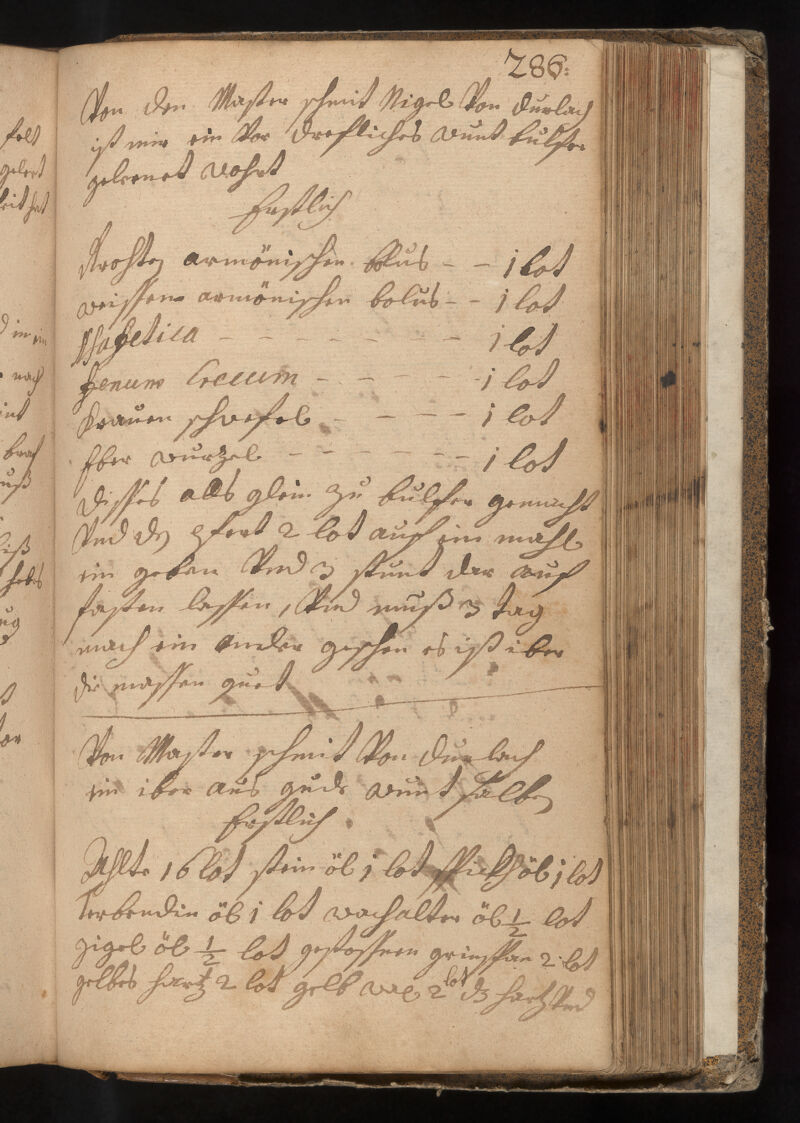 286:
Von den Master schmit Nigel Von Durlach
ist mir ein Vor drefliches wunt bulfer
gelernet wohrt
Erstlich
Rrohten armönischen bolus - - 1 lot
weissen armönischen bolus - - 1 lot
1 lot
fenum Crecum - - - - - 1 lot
Grauen schwefel - - - - 1 lot
Eber wurtzel - - - - - - 1 lot
disses alls glein zu bulfer gemacht
Vnd dz pfert 2 lot auf ein mahl
ein geben Vnd 3 stunt dar auf
fasten lassen, Vnd muß 3 tag
nach ein ander geschen es ist iber
die massen guet
Von Master schmit Von Durlach
ein iber aus gude wunt salben
Erstlich
16 lot stein öl 1 lot spick öl 1 lot
terbendin öl 1 lot wachalter öl ½ lot
zigel öl ½ lot gestossnen grinspan 2 lot
gelbes hartz 2 lot gelb wax 2 lot dz hartz Vnd
felt
gelert
nach